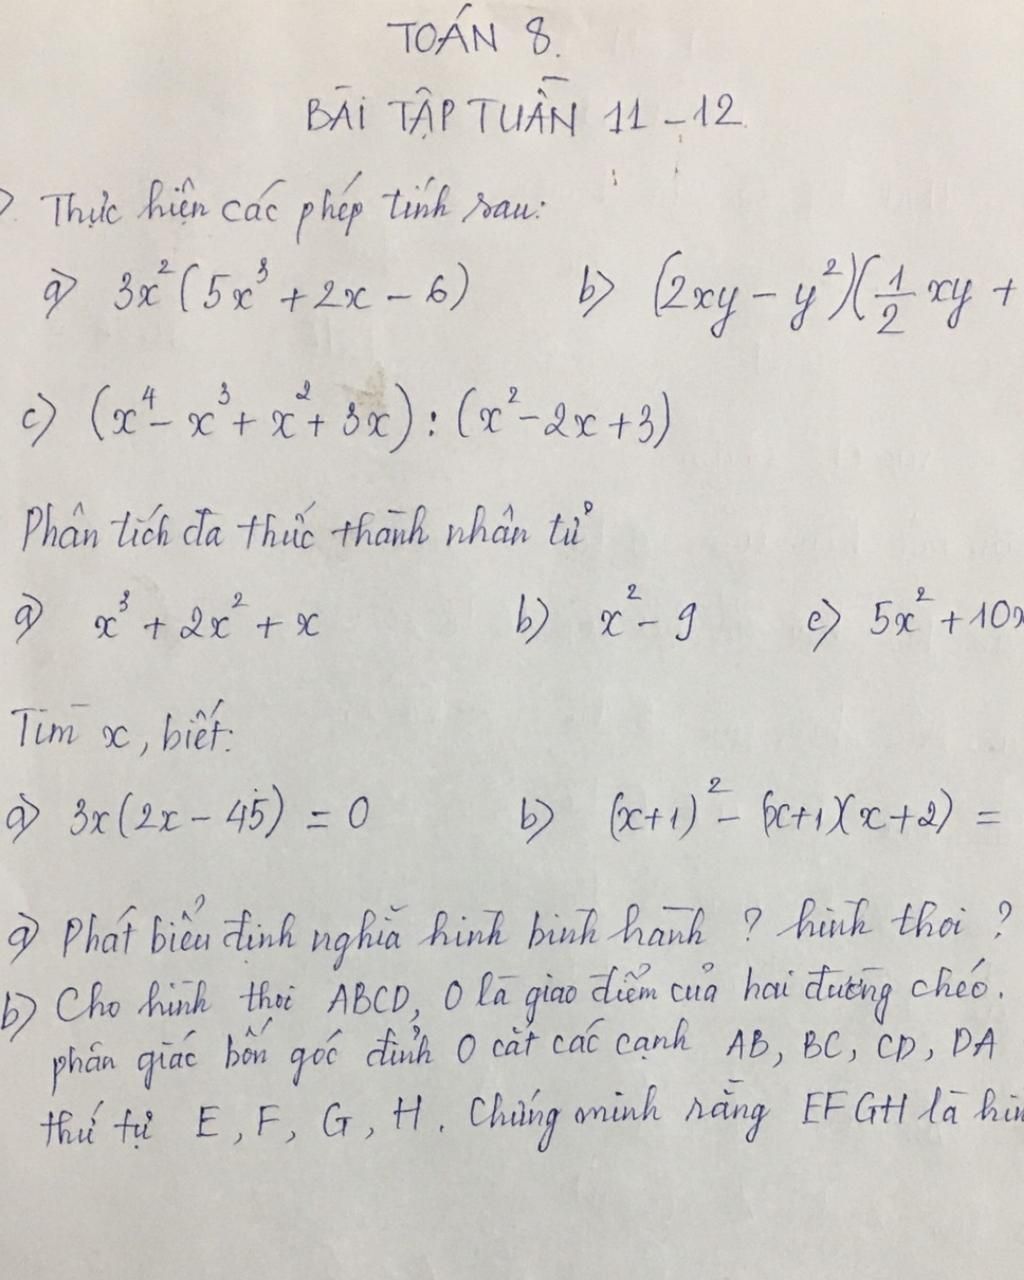 TOÁN 8.
BÀI TẬP TUẦN 11 - 12
Thực hiện các phép tính sau:
a) 3x²(5x³ + 2x - 6) b) (2xy - y²)(1/2 xy +
c) (x⁴ - x³ + x² + 3x) : (x² - 2x + 3)
Phân tích đa thức thành nhân tử
a) x³ + 2x² + x b) x² - 9 c) 5x² + 10x
Tìm x, biết:
a) 3x(2x - 45) = 0 b) (x+1)² - (x+1)(x+2) =
a) Phát biểu định nghĩa hình bình hành ? hình thoi ?
b) Cho hình thoi ABCD, O là giao điểm của hai đường chéo.
phân giác bốn góc đỉnh O cắt các cạnh AB, BC, CD, DA
thứ tự E, F, G, H. Chứng minh rằng EFGH là